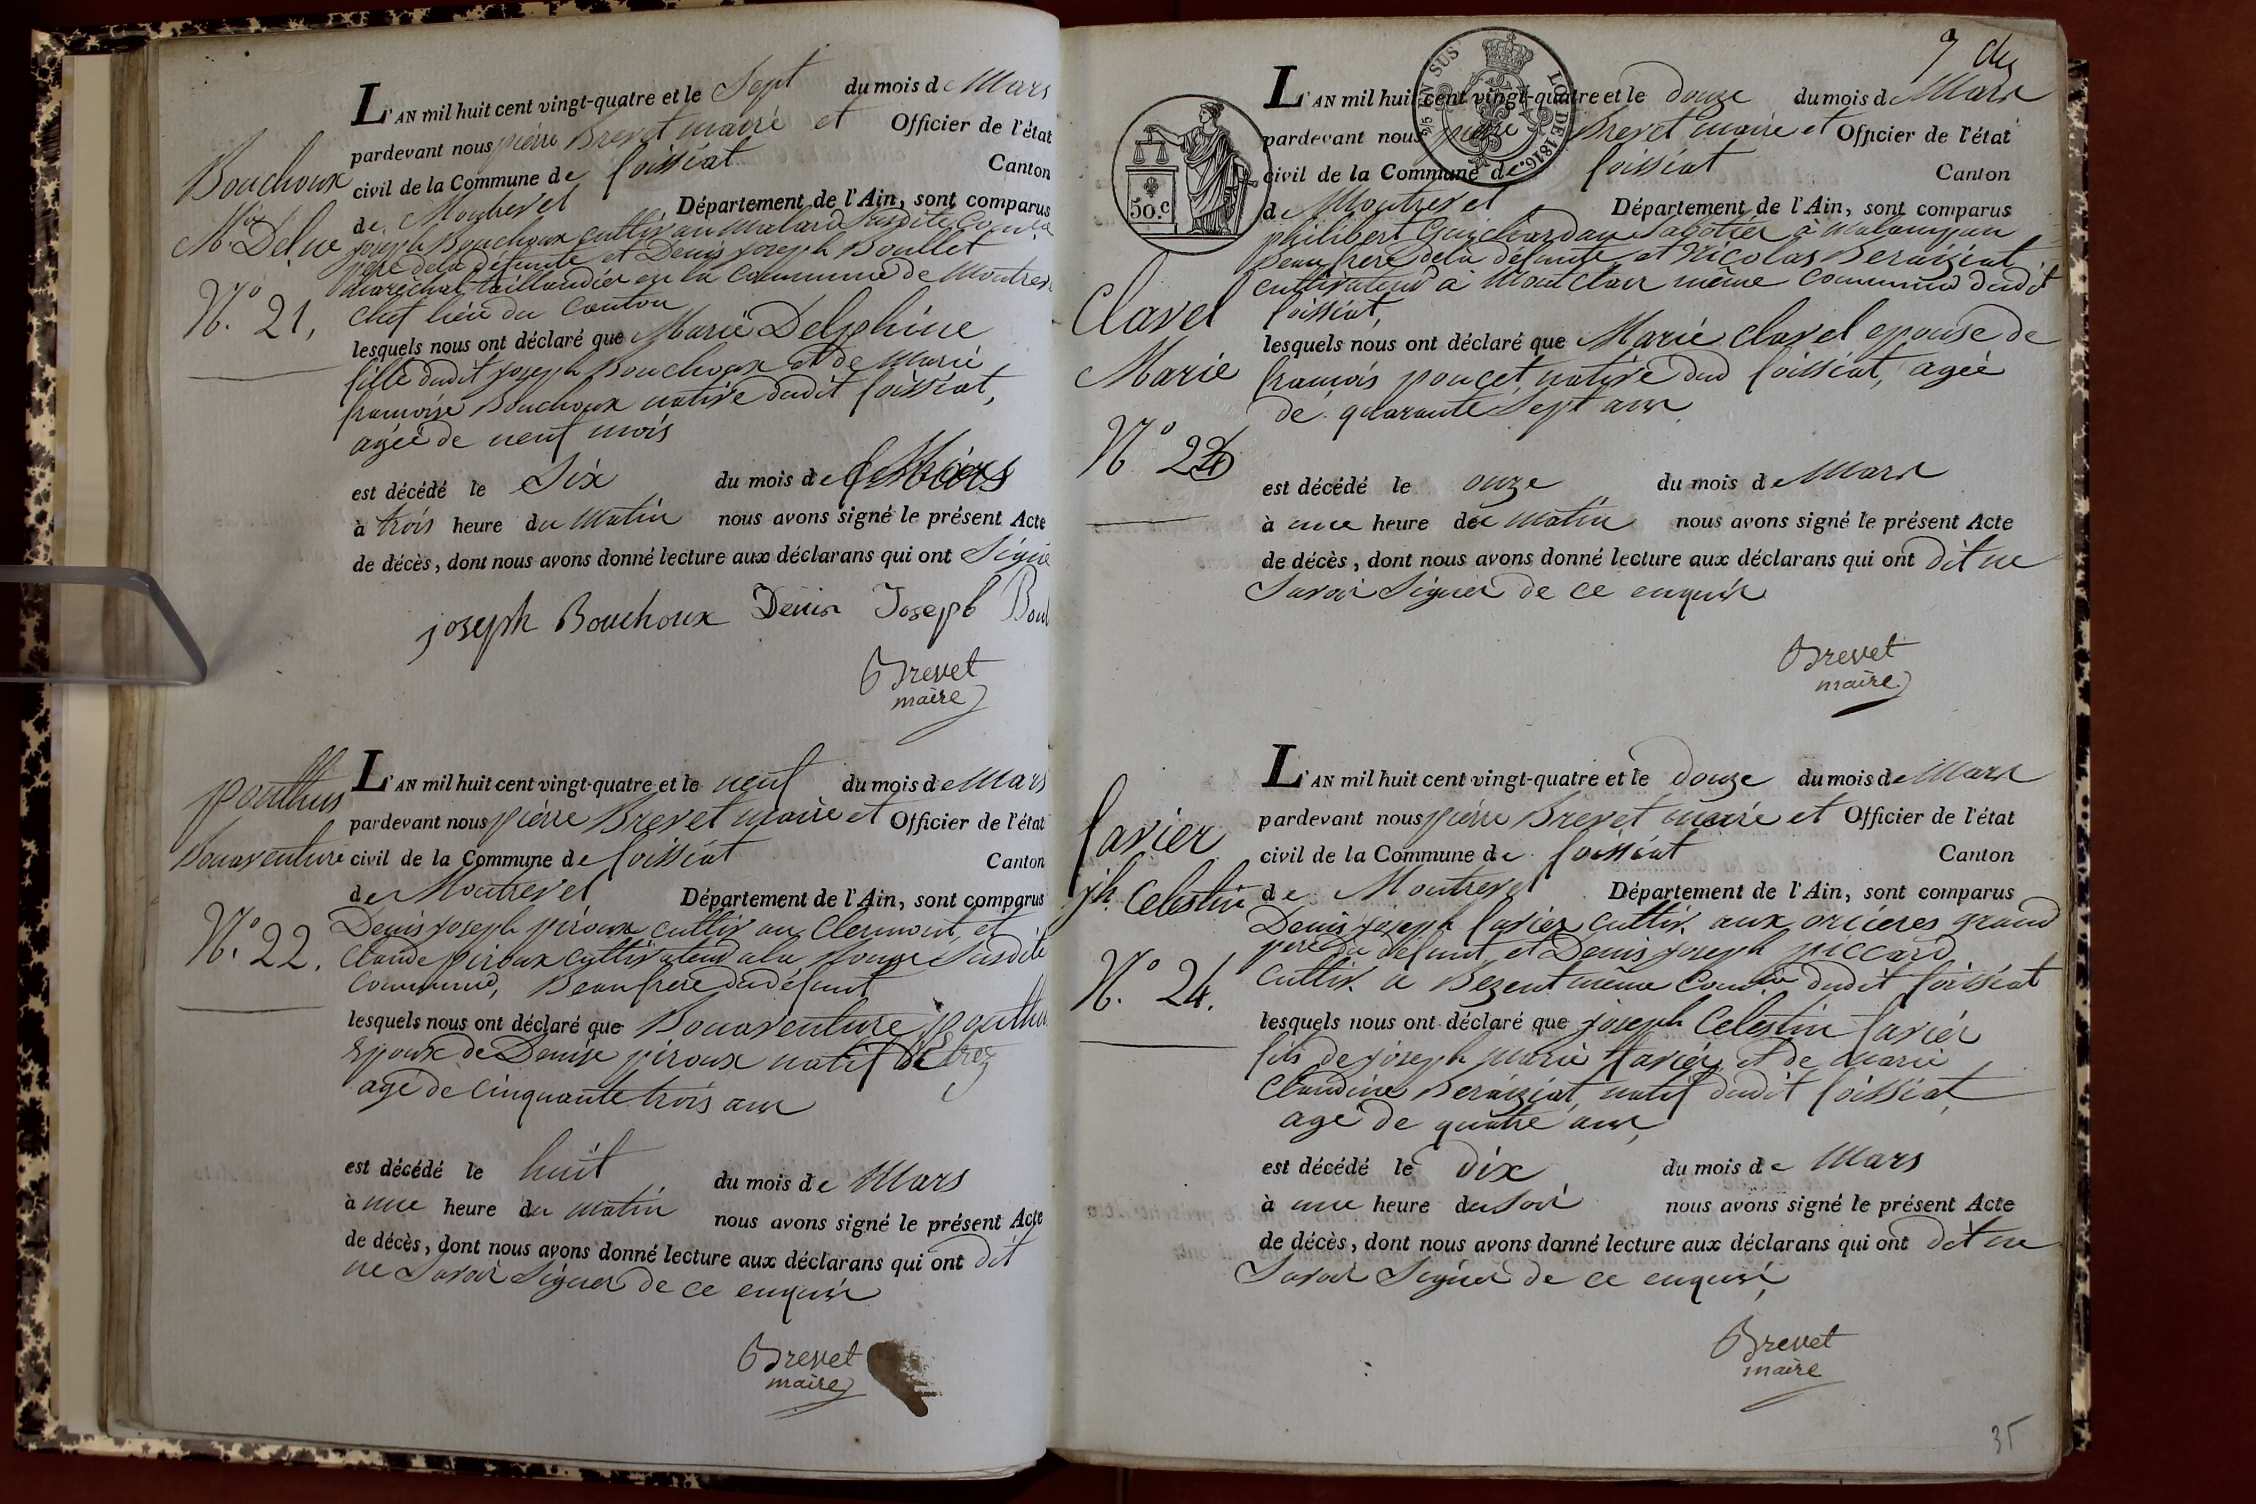 L'AN mil huit cent vingt-quatre et le Sept du mois de Mars
pardevant nous pierre Brevet maire et Officier de l'état
civil de la Commune de foissiat Canton
de Montrevel Département de l'Ain, sont comparus
joseph Bouchoux cultivr au Malard Susdite
père de la défunte et Denis joseph Boullet
maréchal taillandier en la commune de Montrevel
chef lieu du canton
lesquels nous ont déclaré que Marie Delphine
fille dudit joseph Bouchoux et de Marie
françoise Bouchoux native dudit foissiat,
agée de neuf mois
est décédé le Six du mois de Mars
à trois heure du Matin nous avons signé le présent Acte
de décès, dont nous avons donné lecture aux déclarans qui ont Signé
joseph Bouchoux Denis Joseph Boul
Brevet
maire
Bouchoux
Mie Delne
N.o 21,
L'AN mil huit cent vingt-quatre et le neuf du mois de Mars
pardevant nous pierre Brevet maire et Officier de l'état
civil de la Commune de foissiat Canton
de Montrevel Département de l'Ain, sont comparus
Denis joseph piroux cultivr au Clermont, et
Claude piroux cultivateur a la Susdite
Commune, Beaufrere du défunt
lesquels nous ont déclaré que Bonaventure
Epoux de Denise piroux natif
agé de cinquante trois ans
est décédé le huit du mois de Mars
à une heure du Matin nous avons signé le présent Acte
de décès, dont nous avons donné lecture aux déclarans qui ont dit
ne Savoir Signer de ce enquis
Brevet
maire
pouthus
Bonaventure
N.o 22.
7 
L'AN mil huit cent vingt-quatre et le douze du mois de Mars
pardevant nous pierre Brevet maire et Officier de l'état
civil de la Commune de foissiat Canton
de Montrevel Département de l'Ain, sont comparus
philibert Guichardan Sabotier à
beau frere de la défunte et Nicolas Beraiziat
cultivateur à Montclair même commune dudit
foissiat,
lesquels nous ont déclaré que Marie Clavel epouse de
françois poncet, native dud foissiat, agée
de quarante Sept ans
est décédé le onze du mois de Mars
à une heure du matin nous avons signé le présent Acte
de décès, dont nous avons donné lecture aux déclarans qui ont dit ne
Savoir Signer de ce enquis
Brevet
maire
50.c
SUS
LOI DE 1816.
Clavel
Marie
No 23
L'AN mil huit cent vingt-quatre et le douze du mois de Mars
pardevant nous pierre Brevet maire et Officier de l'état
civil de la Commune de foissiat Canton
de Montrevel Département de l'Ain, sont comparus
Denis joseph favier cultivr. aux orcieres grand
pere du défunt, et Denis joseph piccard
cultivr. a Bezent même dudit foissiat
lesquels nous ont déclaré que joseph Celestin favier
fils de joseph marie favier et de marie
Claudine Beraiziat, natif dudit foissiat,
agé de quatre ans,
est décédé le Dix du mois de Mars
à une heure du Soir nous avons signé le présent Acte
de décès, dont nous avons donné lecture aux déclarans qui ont dit ne
Savoir Signer de ce enquis,
Brevet
maire
favier
jh. Celestin
N.o 24.
35